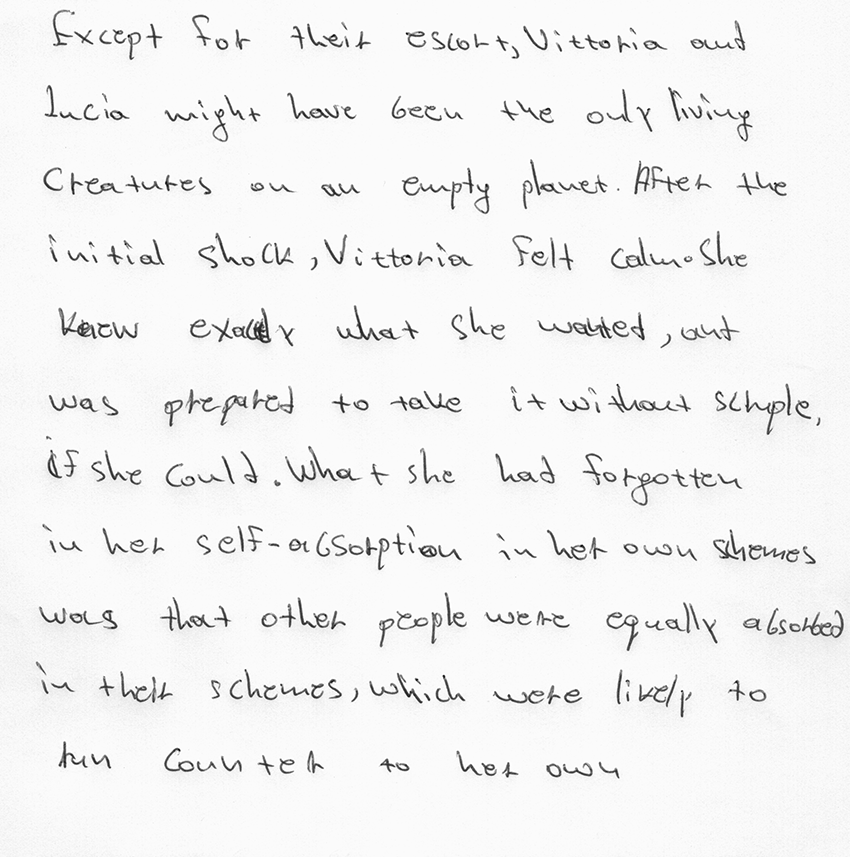 Except for their escort, Vittoria and
Lucia might have been the only living
Creatures on an empty planet. After the
initial shock, Vittoria felt calm. She
knew exactly what she wanted, and
was prepared to take it without scruple,
if she could. What she had forgotten
in her self-absorption in her own schemes
was that other people were equally absorbed
in their schemes, which were lively to
run counter to her own